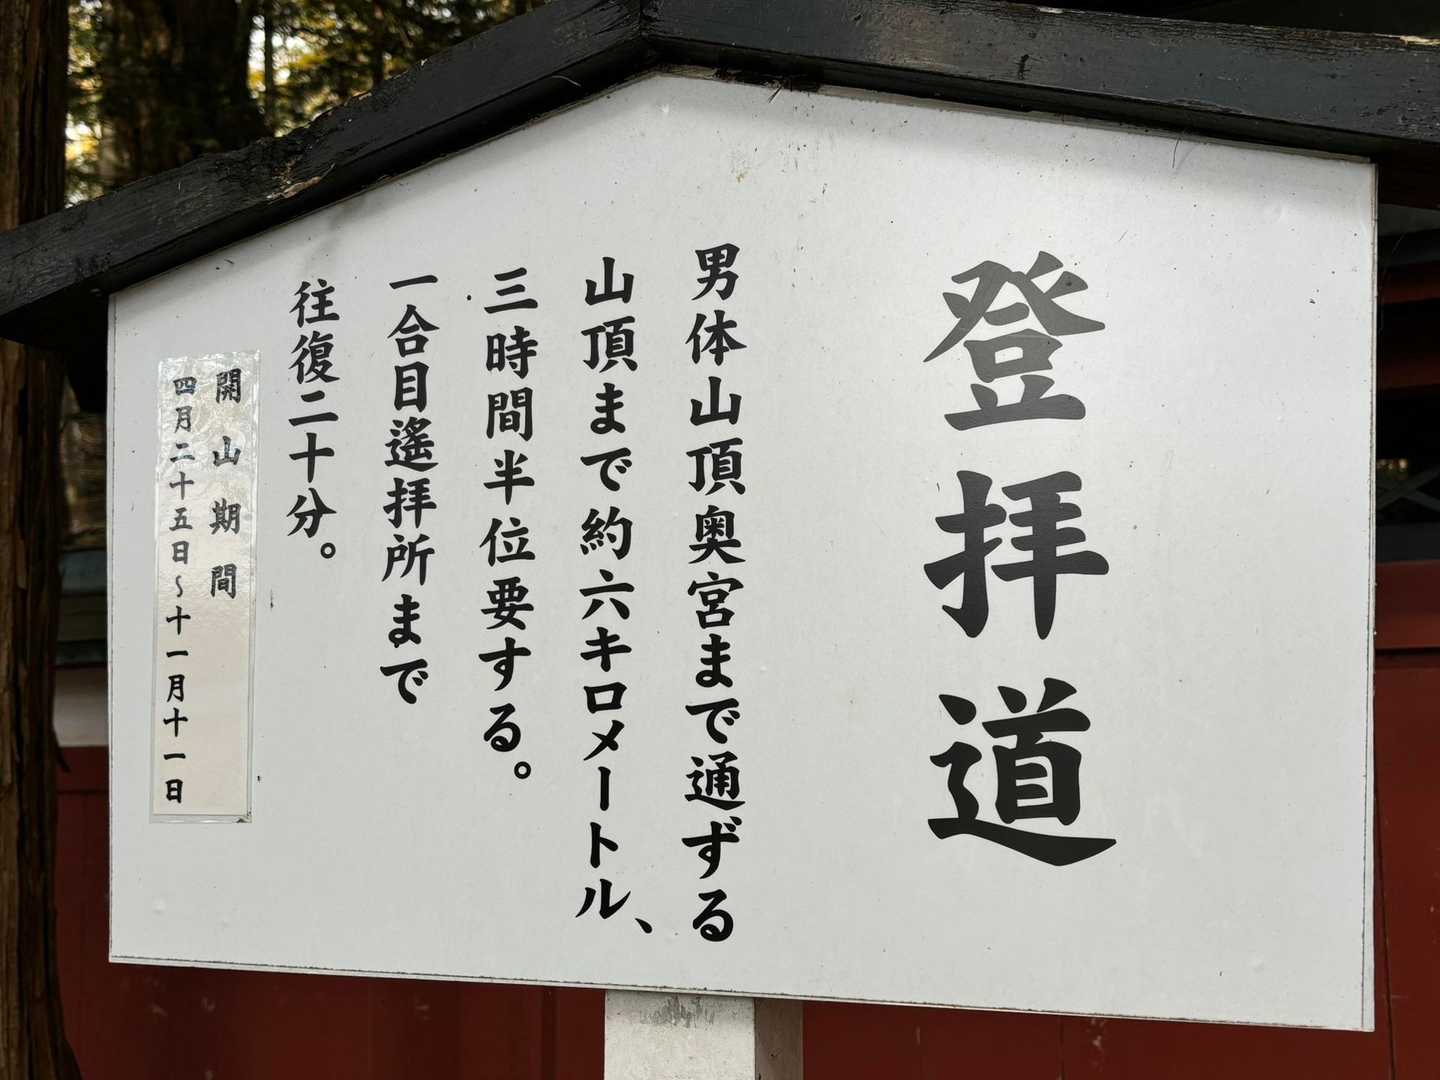 登拝道
男体山頂奥宮まで通ずる
山頂まで約六キロメートル、
三時間半位要する。
一合目遙拝所まで
往復二十分。
開山期間
四月二十五日～十一月十一日